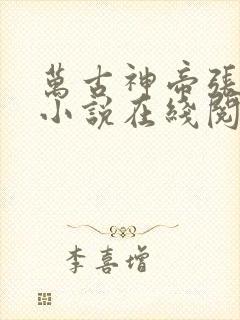 萬古神帝張
小說在綫閱
李喜增